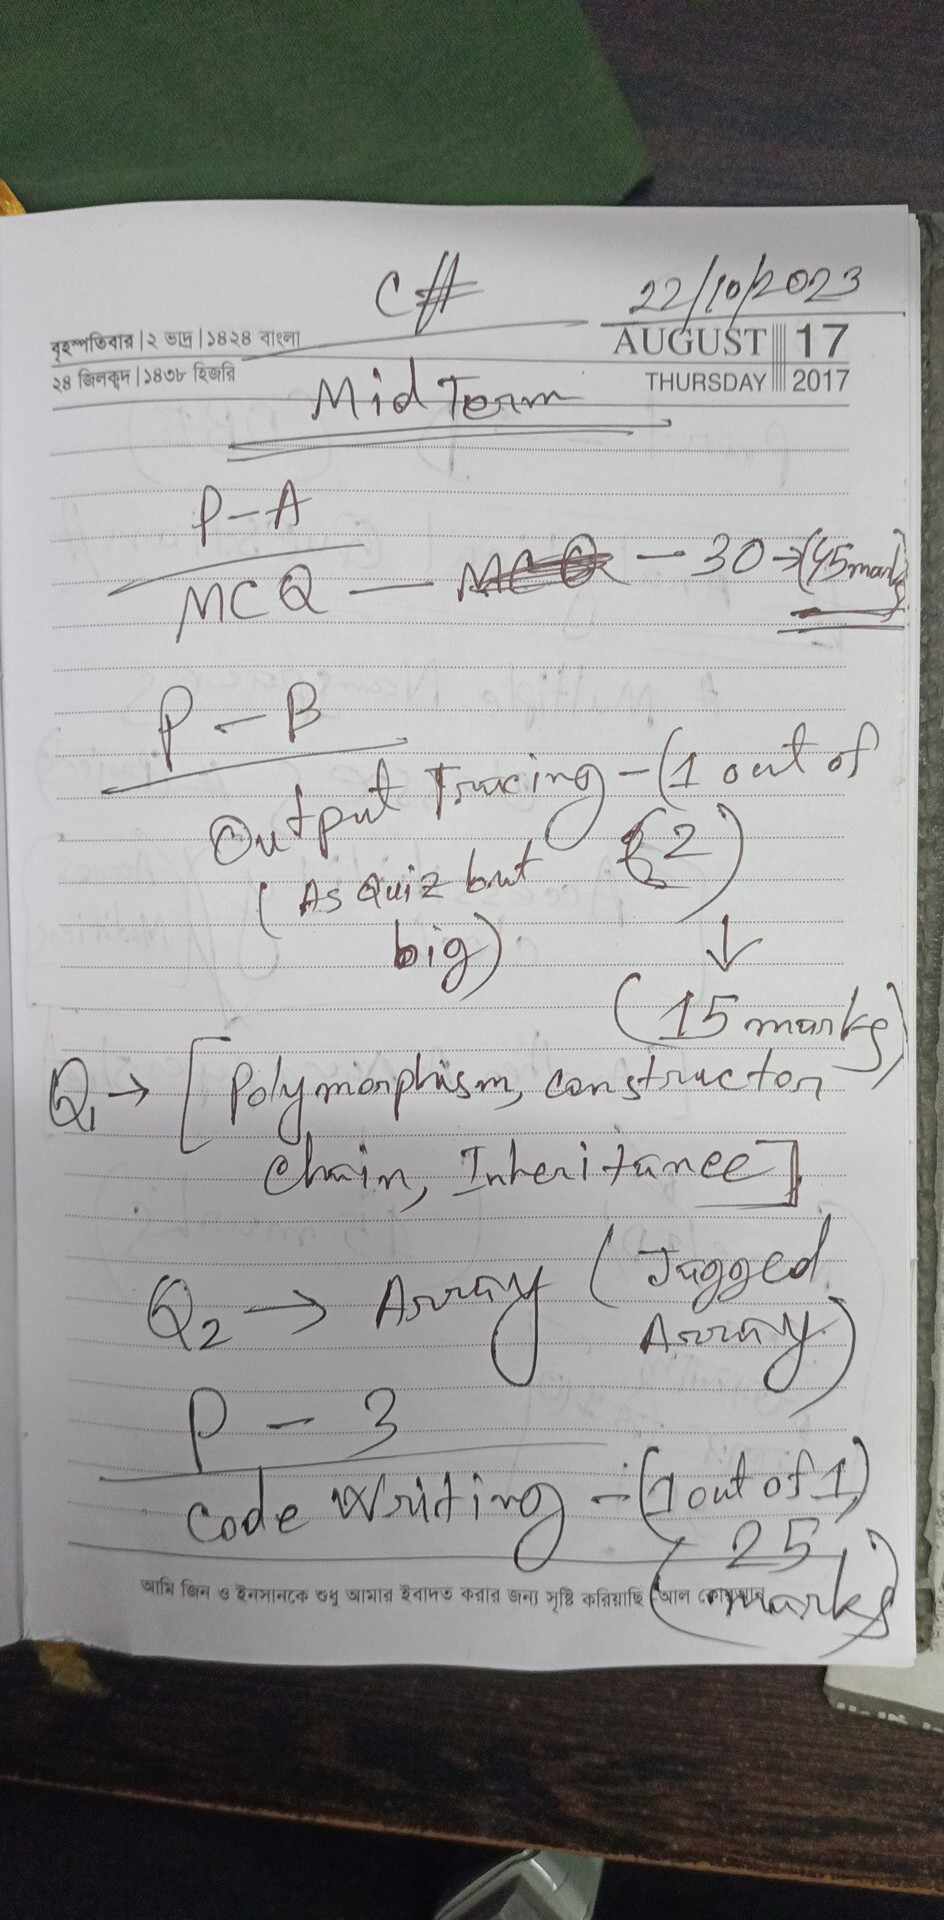 C#
22/10/2023
বৃহস্পতিবার | ২ ভাদ্র | ১৪২৪ বাংলা
AUGUST 17
২৪ জিলকদ | ১৪৩৮ হিজরি
THURSDAY 2017
Mid Term
P-A
MCQ — MCQ — 30 → (45 mark)
P - B
Output Tracing - (1 out of
2)
(As Quiz but
big)
↓
(15 marks)
Q1 → [Polymorphism, constructor
chain, Inheritance]
Q2 → Array (Jagged
Array)
P - 3
Code Writing - (1 out of 1)
(25
marks)
আমি জিন ও ইনসানকে শুধু আমার ইবাদত করার জন্য সৃষ্টি করিয়াছি -আল